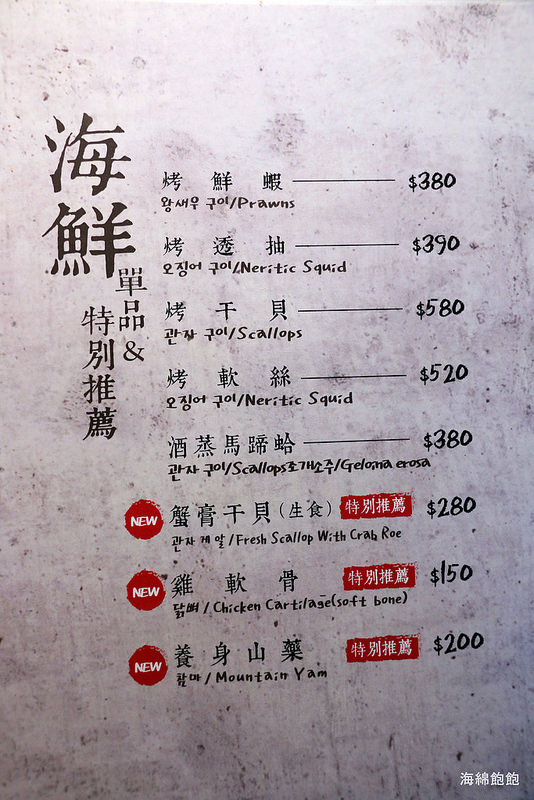 海鮮
單品&
特別推薦
烤鮮蝦 $380
왕새우 구이/Prawns
烤透抽 $390
오징어 구이/Neritic Squid
烤干貝 $580
관자 구이/Scallops
烤軟絲 $520
오징어 구이/Neritic Squid
酒蒸馬蹄蛤 $380
관자 구이/Scallops조개소주/Geloina erosa
NEW 蟹膏干貝(生食) 特別推薦 $280
관자 게 알/Fresh Scallop With Crab Roe
NEW 雞軟骨 特別推薦 $150
닭뼈/Chicken Cartilage(soft bone)
NEW 養身山藥 特別推薦 $200
참마/Mountain Yam
海綿飽飽